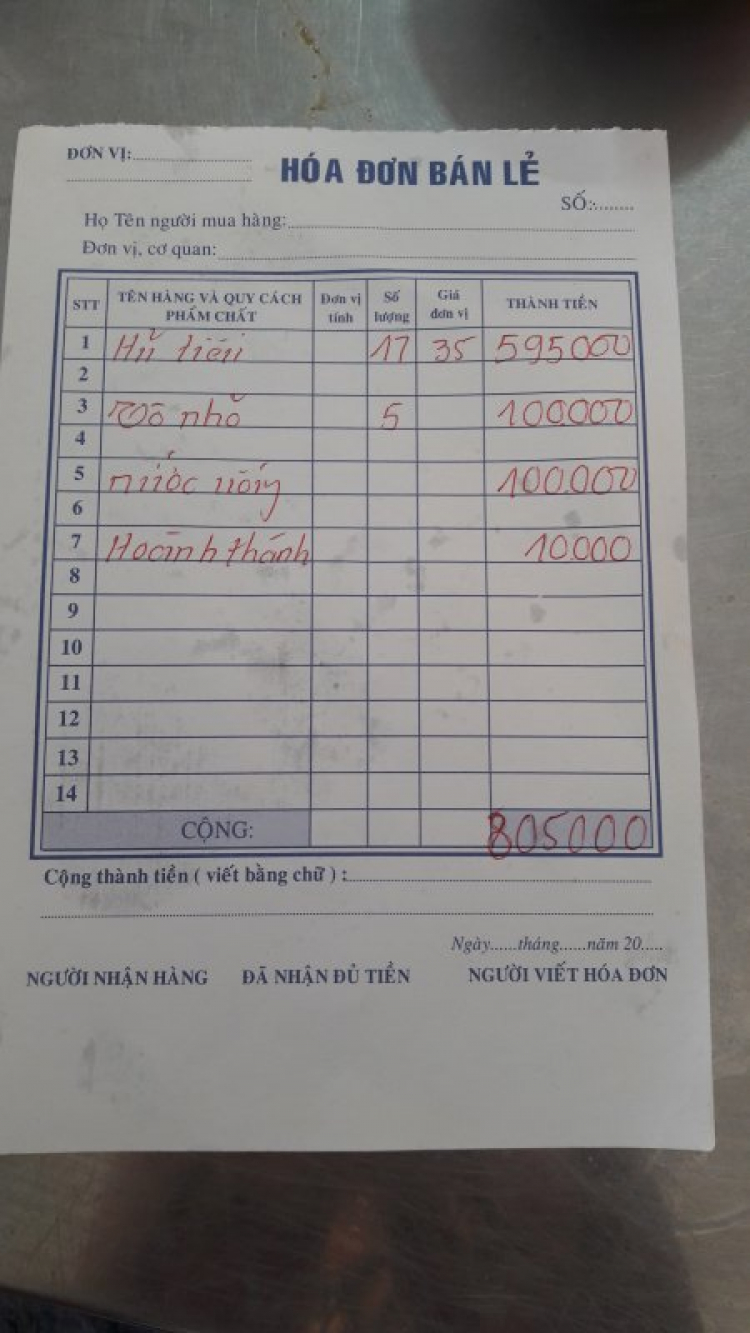 ĐƠN VỊ:
HÓA ĐƠN BÁN LẺ
SỐ:
Họ Tên người mua hàng:
Đơn vị, cơ quan:
STT TÊN HÀNG VÀ QUY CÁCH PHẨM CHẤT Đơn vị tính Số lượng Giá đơn vị THÀNH TIỀN
1 Hủ tiếu 17 35 595000
2
3 Tô nhỏ 5 100.000
4
5 nước uống 100.000
6
7 Hoành thánh 10.000
8
9
10
11
12
13
14
CỘNG: 805000
Cộng thành tiền ( viết bằng chữ ) :
Ngày......tháng......năm 20.....
NGƯỜI NHẬN HÀNG ĐÃ NHẬN ĐỦ TIỀN NGƯỜI VIẾT HÓA ĐƠN